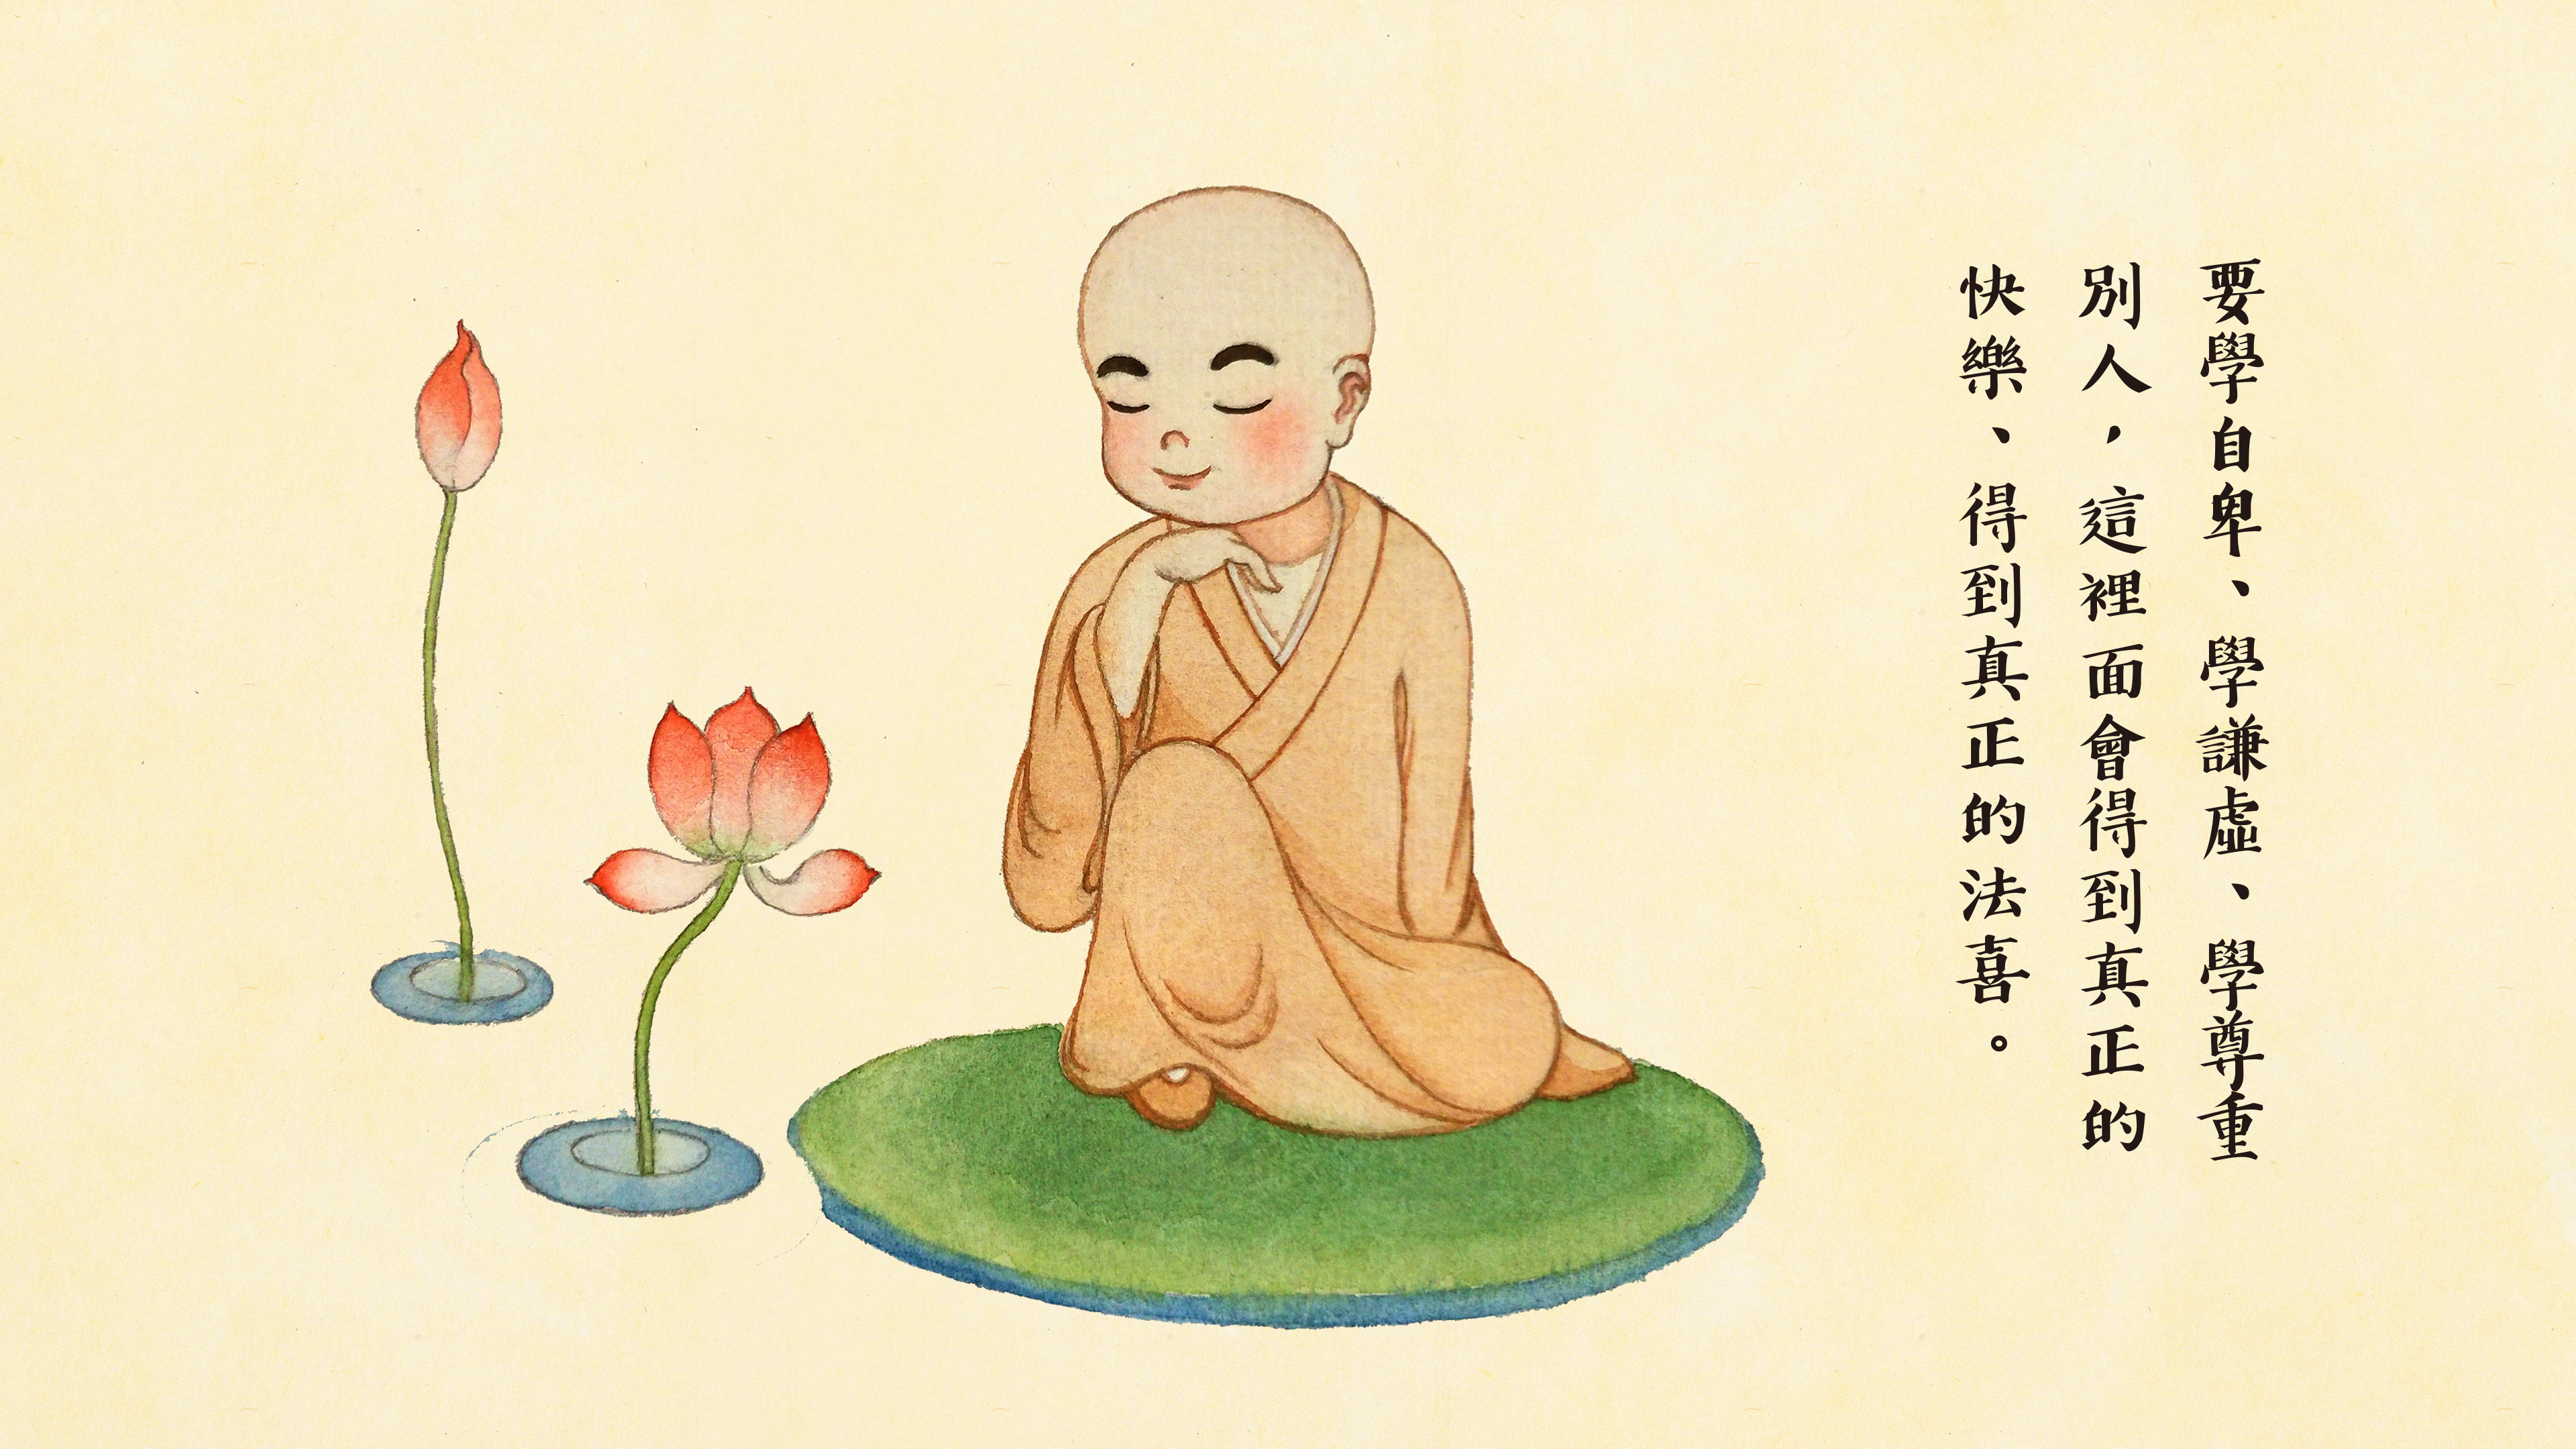 要學自卑、學謙虛、學尊重
別人，這裡面會得到真正的
快樂、得到真正的法喜。